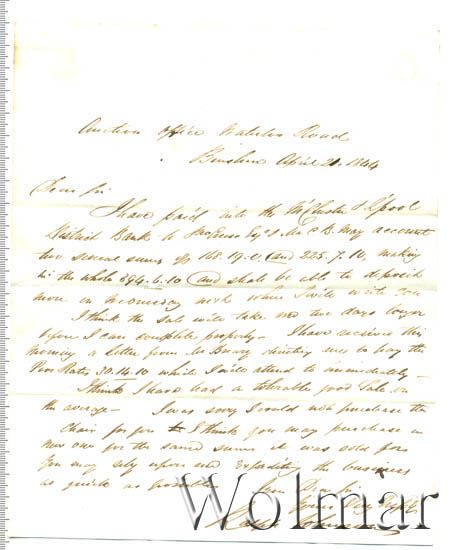 Auction Office Waterloo Road
Burslem April 21. 1844
Dear Sir
I have paid into the M'Chester & L'pool
District Bank to Esqs & Mr account
two several sums of 168.19.0 (and 225.7.10, making
in the whole 394.6.10 (and shall be able to deposit
more on Wednesday next when I will write you
I think the sale will take me two days longer
before I can complete property — I have received this
Morning a letter from Mr directing me to pay the
Poor Rates 30.14.10 which I will attend to immediately —
I think I have had a tolerable good Sale on
the average — I was sorry I could not purchase the
Chair for you I think you may purchase a
new one for the same sum it was sold for
You may rely upon me expediting the business
as quick as possible
I am Dear Sir
Yours
Wolmar